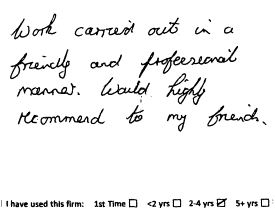 Work carried out in a
friendly and professional
manner. Would highly
recommend to my friends.
I have used this firm: 1st Time ☐ <2 yrs ☐ 2-4 yrs ☑ 5+ yrs ☐